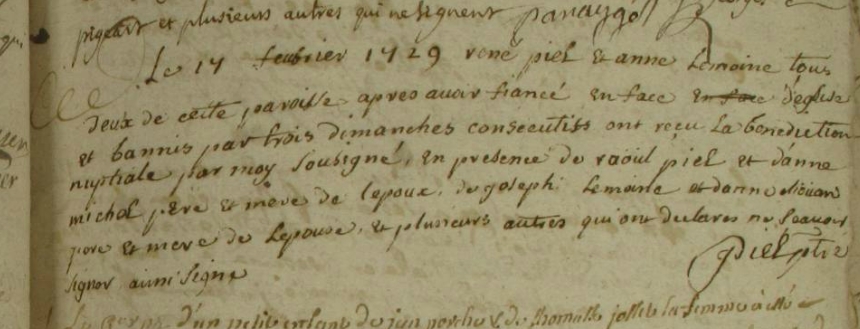 pigeart et plusieurs autres qui ne signent
Le 17 feubrier 1729 rené piel et anne Lemoine tous
deux de cette paroisse apres avoir fiancé en face en face d'eglise
et bannis par trois dimanches consecutifs ont reçu La benediction
nuptiale par moy sousigné, en presence de raoul piel et d'anne
michel pere et mere de lepoux, de joseph Lemoine et danne
pere et mere de Lepouse, et plusieurs autres qui ont declarés ne scavoir
signer ainsi signe piel ptre
d'un petit enfant de jan porcher & de thomasse